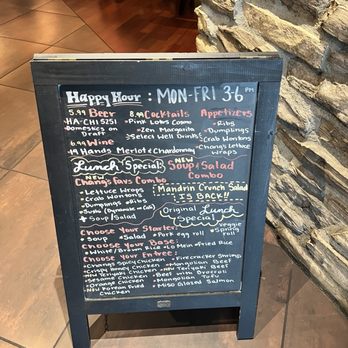 Happy Hour : MON-FRI 3-6 PM
5.99 Beer 8.99 Cocktails Appetizers
HA-CHI 5251 • Pink Lotus Cosmo • Ribs
Domestics on Draft • Zen Margarita • Dumplings
• Select Well Drinks • Crab Wontons
6.99 Wine • Chang's Lettuce Wraps
Hands Merlot & Chardonnay
Lunch Special NEW Soup & Salad Combo
NEW
Chang's Favs Combo
• Lettuce Wraps
• Crab Wontons
• Dumplings • Ribs
+ Soup/Salad
Mandrin Crunch Salad
IS BACK!!
Original Lunch Special
Choose Your Starter:
• Soup • Salad • Pork egg roll • Veggie Spring roll
Choose Your Base:
• White/Brown Rice
Choose Your Entree:
• Chang's Spicy Chicken • Firecracker Shrimp
• Crispy Honey Chicken • Mongolian Beef
• Sesame Chicken • Beef with Broccoli
• Orange Chicken
• NEW Korean Fried Chicken • Miso Glazed Salmon